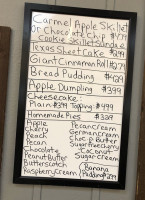 Carmel Apple Skillet
Or Chocolate Chip $4.99
Cookie Skillet Sundae
Texas Sheet Cake $2.99
Giant Cinnamon Roll $2.79
Bread Pudding $4.29
Apple Dumpling $3.99
Cheesecake:
Plain $3.99 Topping $4.99
Homemade Pies $3.29
Apple
Cherry
Peach
Pecan
Chocolate
Peanut Butter
Butterscotch
Raspberry Cream
Pecan Cream
German Cream
Choc. P. Butter
Sugar Free Cherry
Coconut
Sugar Cream
Banana
Pudding $2.99